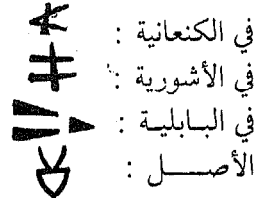 في الكنعانية :
في الأشورية :
في البـابليـة :
الأصـــــل :